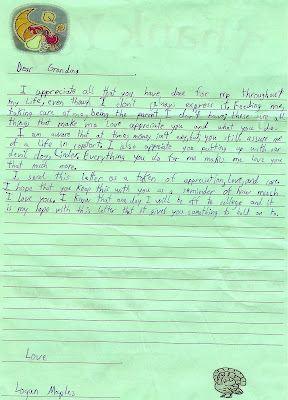 Dear Grandma
I appreciate all that you have done for me throughout
my life, even though I don't always express it. Feeding me,
taking care of me, being the parent I don't have; these are all
things that make me love appreciate you and what you do.
I am aware that at times money isn't easy, but you still assure me
of a life in comfort. I also appreciate you putting up with our
devil dog, Everything you do for me makes me love you
that much more.
I send this letter as a token of appreciation, love, and care.
I hope that you keep this with you as a reminder of how much
I love you. I know that one day I will be off to college and it
is my hope with this letter that it gives you something to hold on to.
Love
Logan Maples